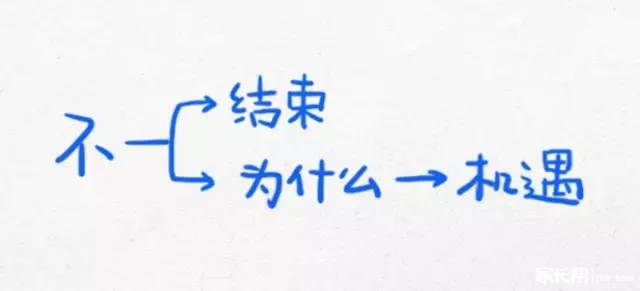 不 → 结束
为什么 → 机遇
家长帮 jzb.com